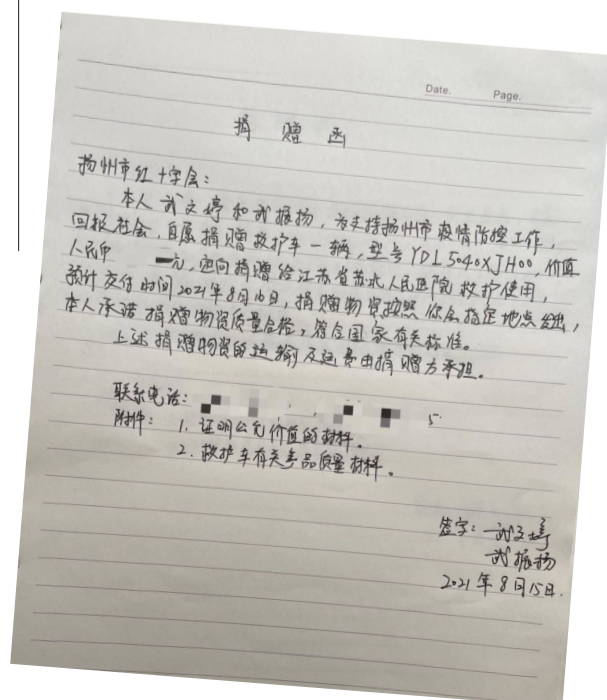 Date. Page.
捐赠函
扬州市红十字会：
本人武文婷和武振扬，为支持扬州市疫情防控工作，
回报社会，自愿捐赠救护车一辆，型号YDL5040XJH00，价值
人民币 元，定向捐赠给江苏省苏北人民医院救护使用，
预计交付时间2021年8月16日，捐赠物资按照你会指定地点
本人承诺捐赠物资质量合格，符合国家有关标准。
上述捐赠物资的运输及运费由捐赠方承担。
联系电话： 5
附件：1.证明公允价值的材料。
2.救护车有关产品质量材料。
签字：武文婷
武振扬
2021年8月15日.